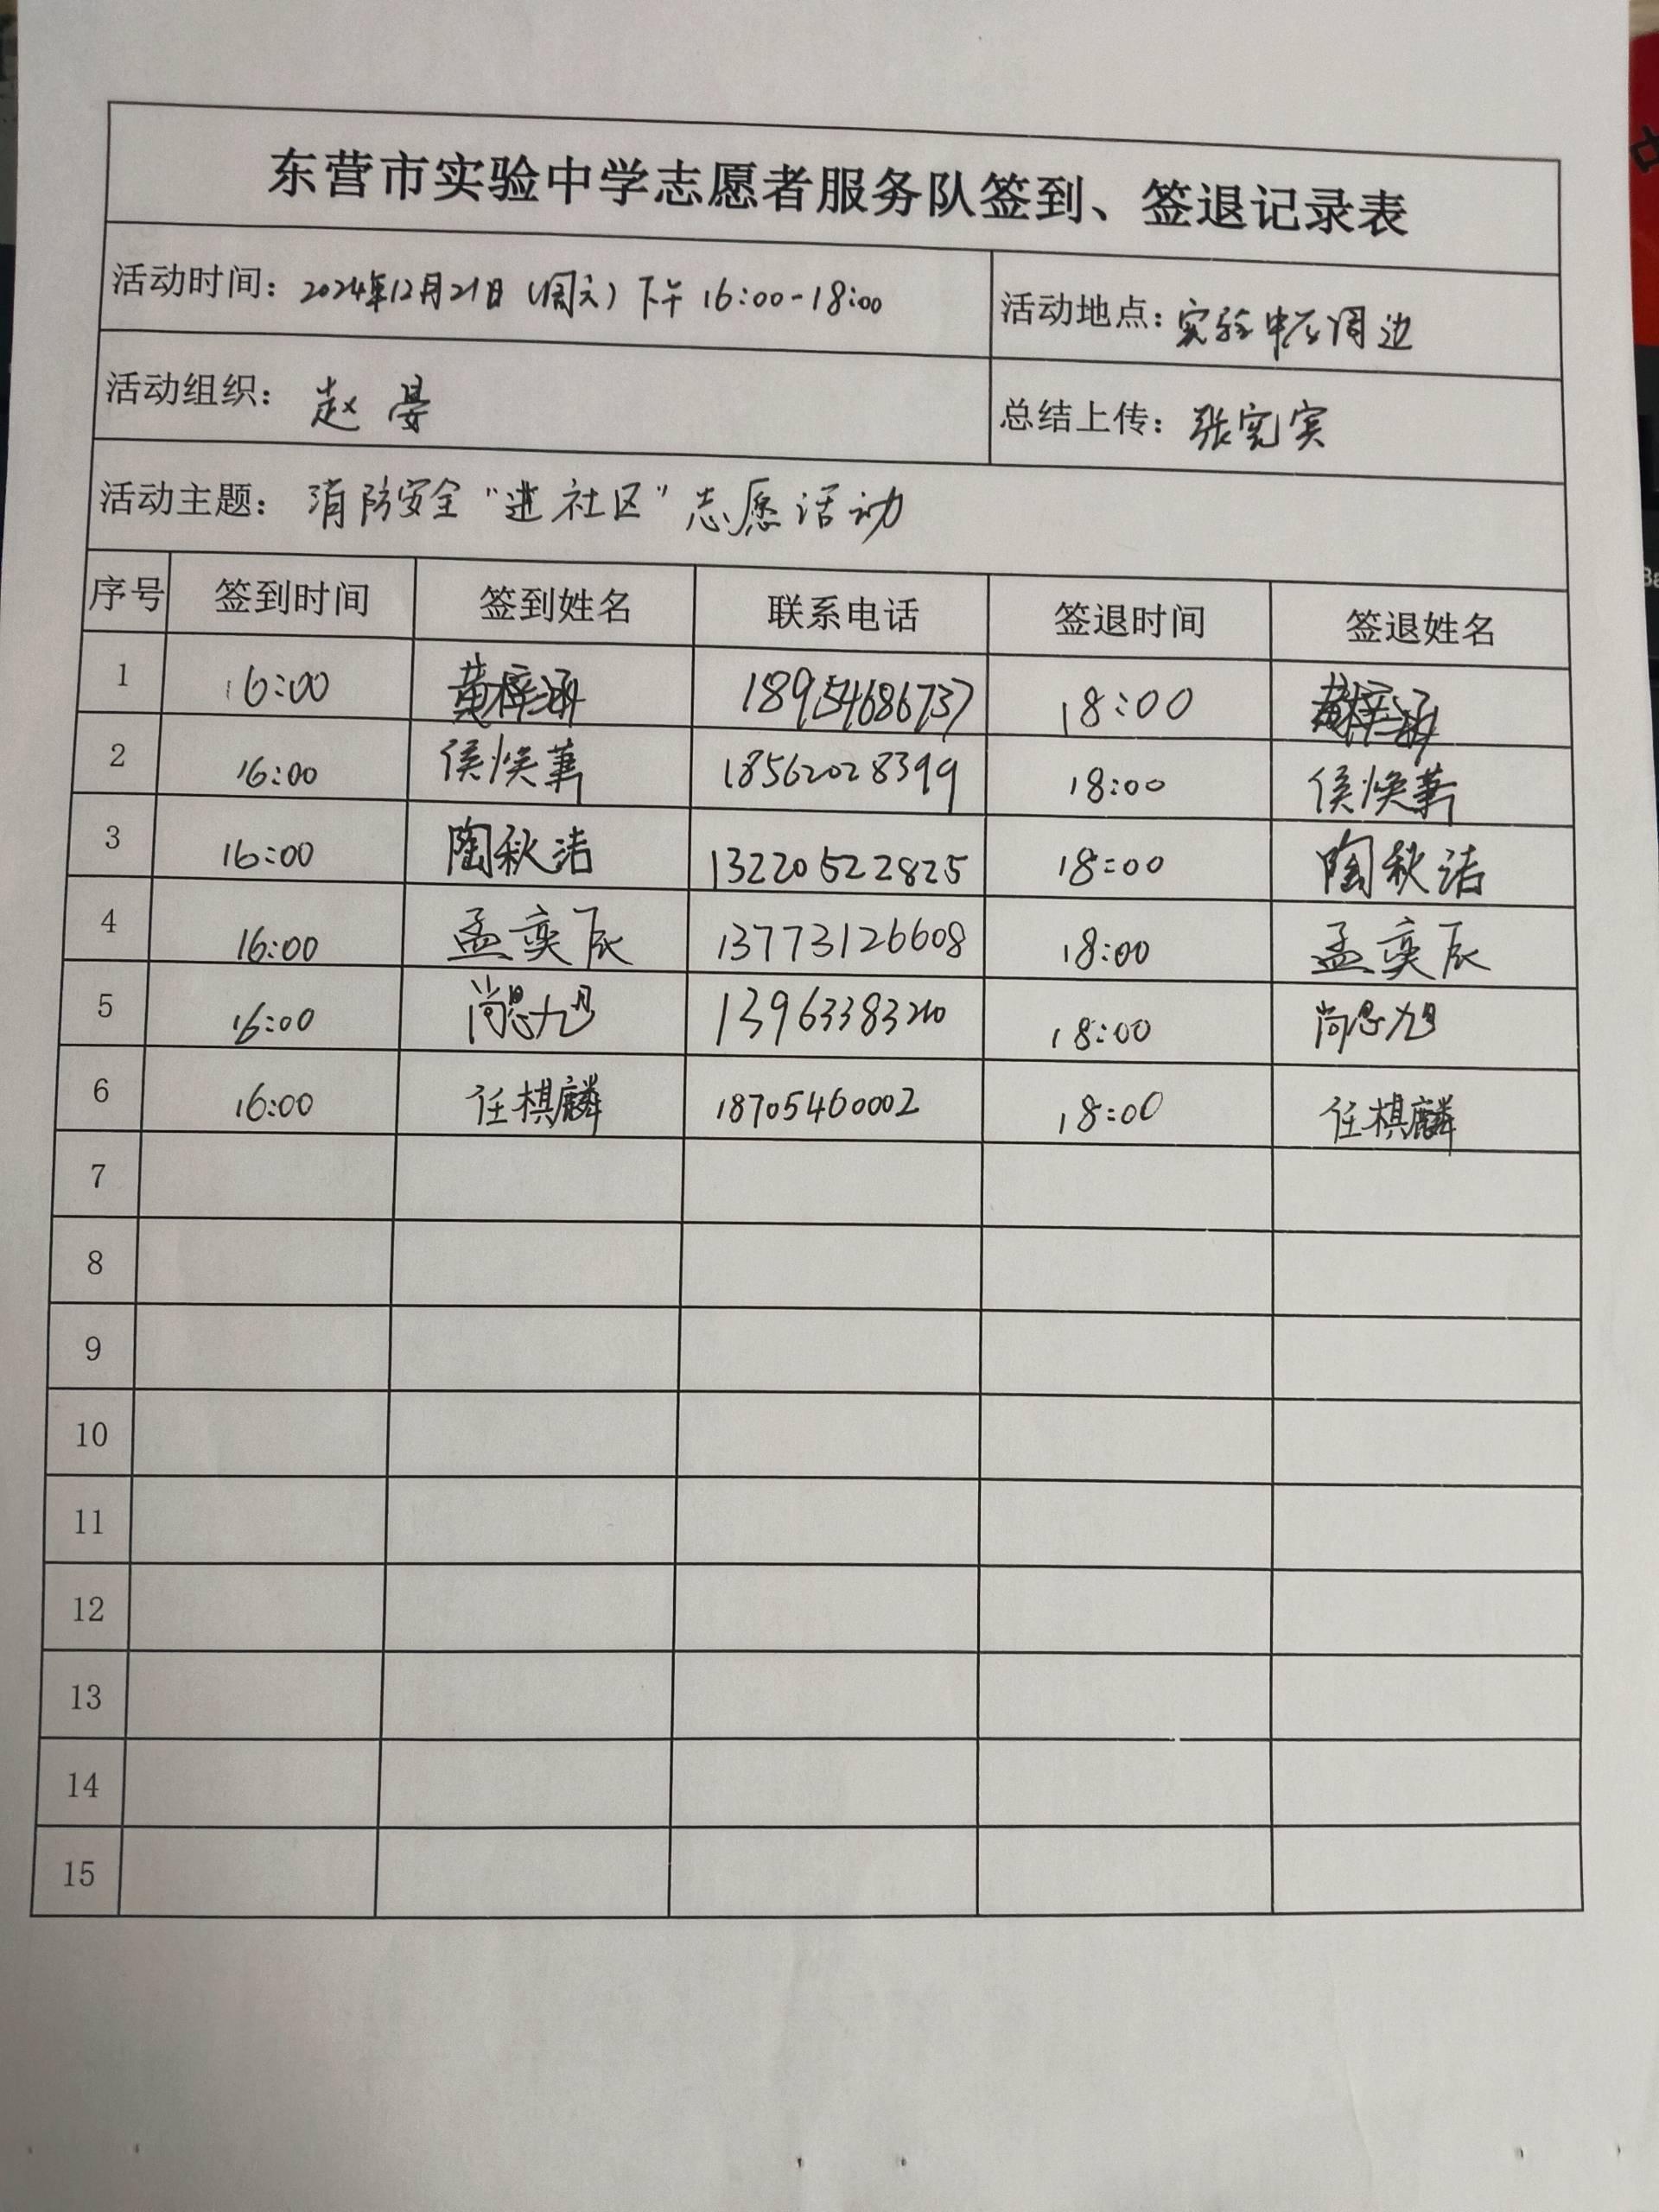 东营市实验中学志愿者服务队签到、签退记录表
活动时间：2024年12月21日（周六）下午 16:00-18:00 活动地点：实验中学周边
活动组织：赵晏 总结上传：张宪宾
活动主题：消防安全“进社区”志愿活动
序号 签到时间 签到姓名 联系电话 签退时间 签退姓名
1 16:00 黄梓涵 18954686737 18:00 黄梓涵
2 16:00 侯焕菁 18562028399 18:00 侯焕菁
3 16:00 陶秋洁 13220522825 18:00 陶秋洁
4 16:00 孟奕辰 13773126608 18:00 孟奕辰
5 16:00 尚思旭 18:00 尚思旭
6 16:00 任棋麟 18705460002 18:00 任棋麟
7
8
9
10
11
12
13
14
15